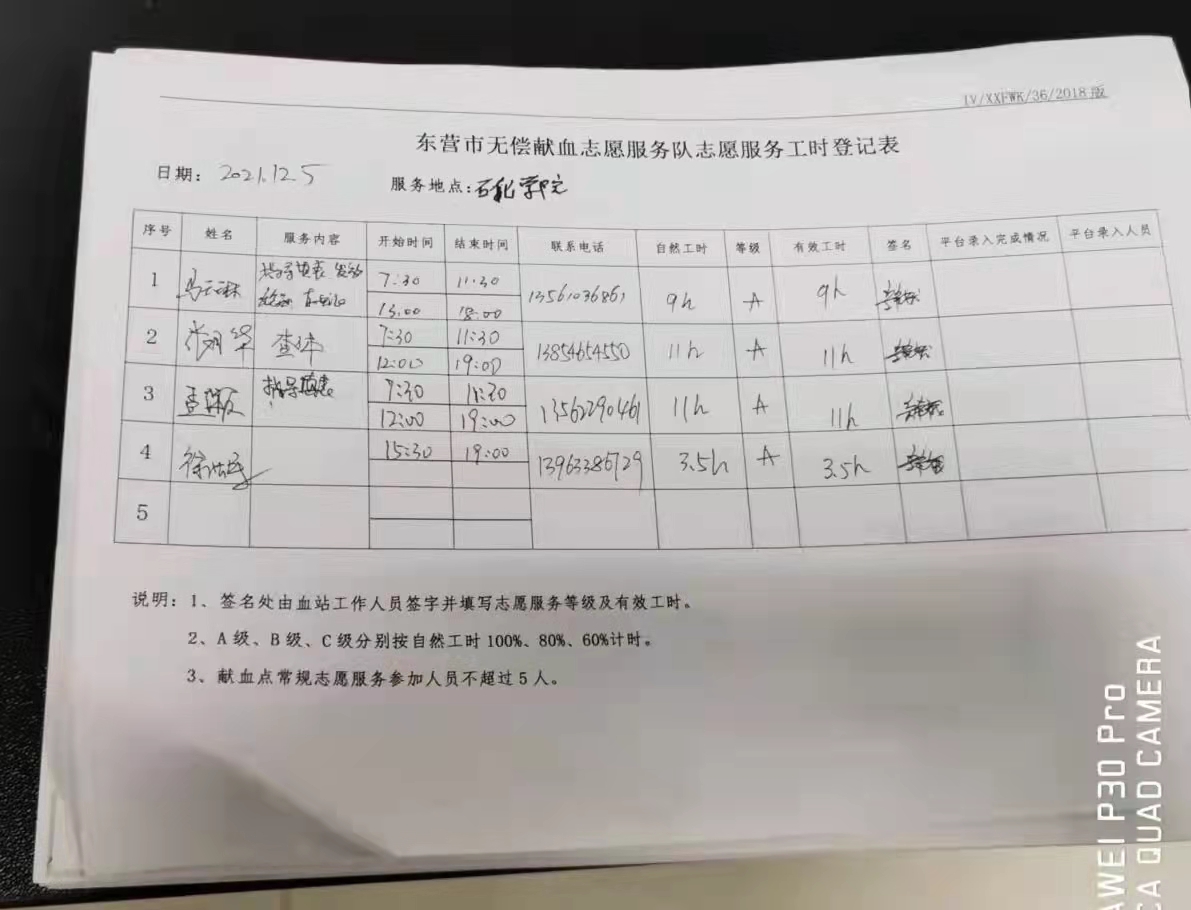 IV/XXFWK/36/2018版
东营市无偿献血志愿服务队志愿服务工时登记表
日期: 2021.12.5 服务地点:石化学院
序号 姓名 服务内容 开始时间 结束时间 联系电话 自然工时 等级 有效工时 签名 平台录入完成情况 平台录入人员
1 7:30 11:30 13561036861 9h A 9h
13:00 18:00
2 查体 7:30 11:30 13854654550 11h A 11h
12:00 19:00
3 指导填表 7:30 11:30 13562290461 11h A 11h
12:00 19:00
4 15:30 19:00 13963386729 3.5h A 3.5h
5
说明:1、签名处由血站工作人员签字并填写志愿服务等级及有效工时。
2、A级、B级、C级分别按自然工时100%、80%、60%计时。
3、献血点常规志愿服务参加人员不超过5人。
AWEI P30 Pro
CA QUAD CAMERA